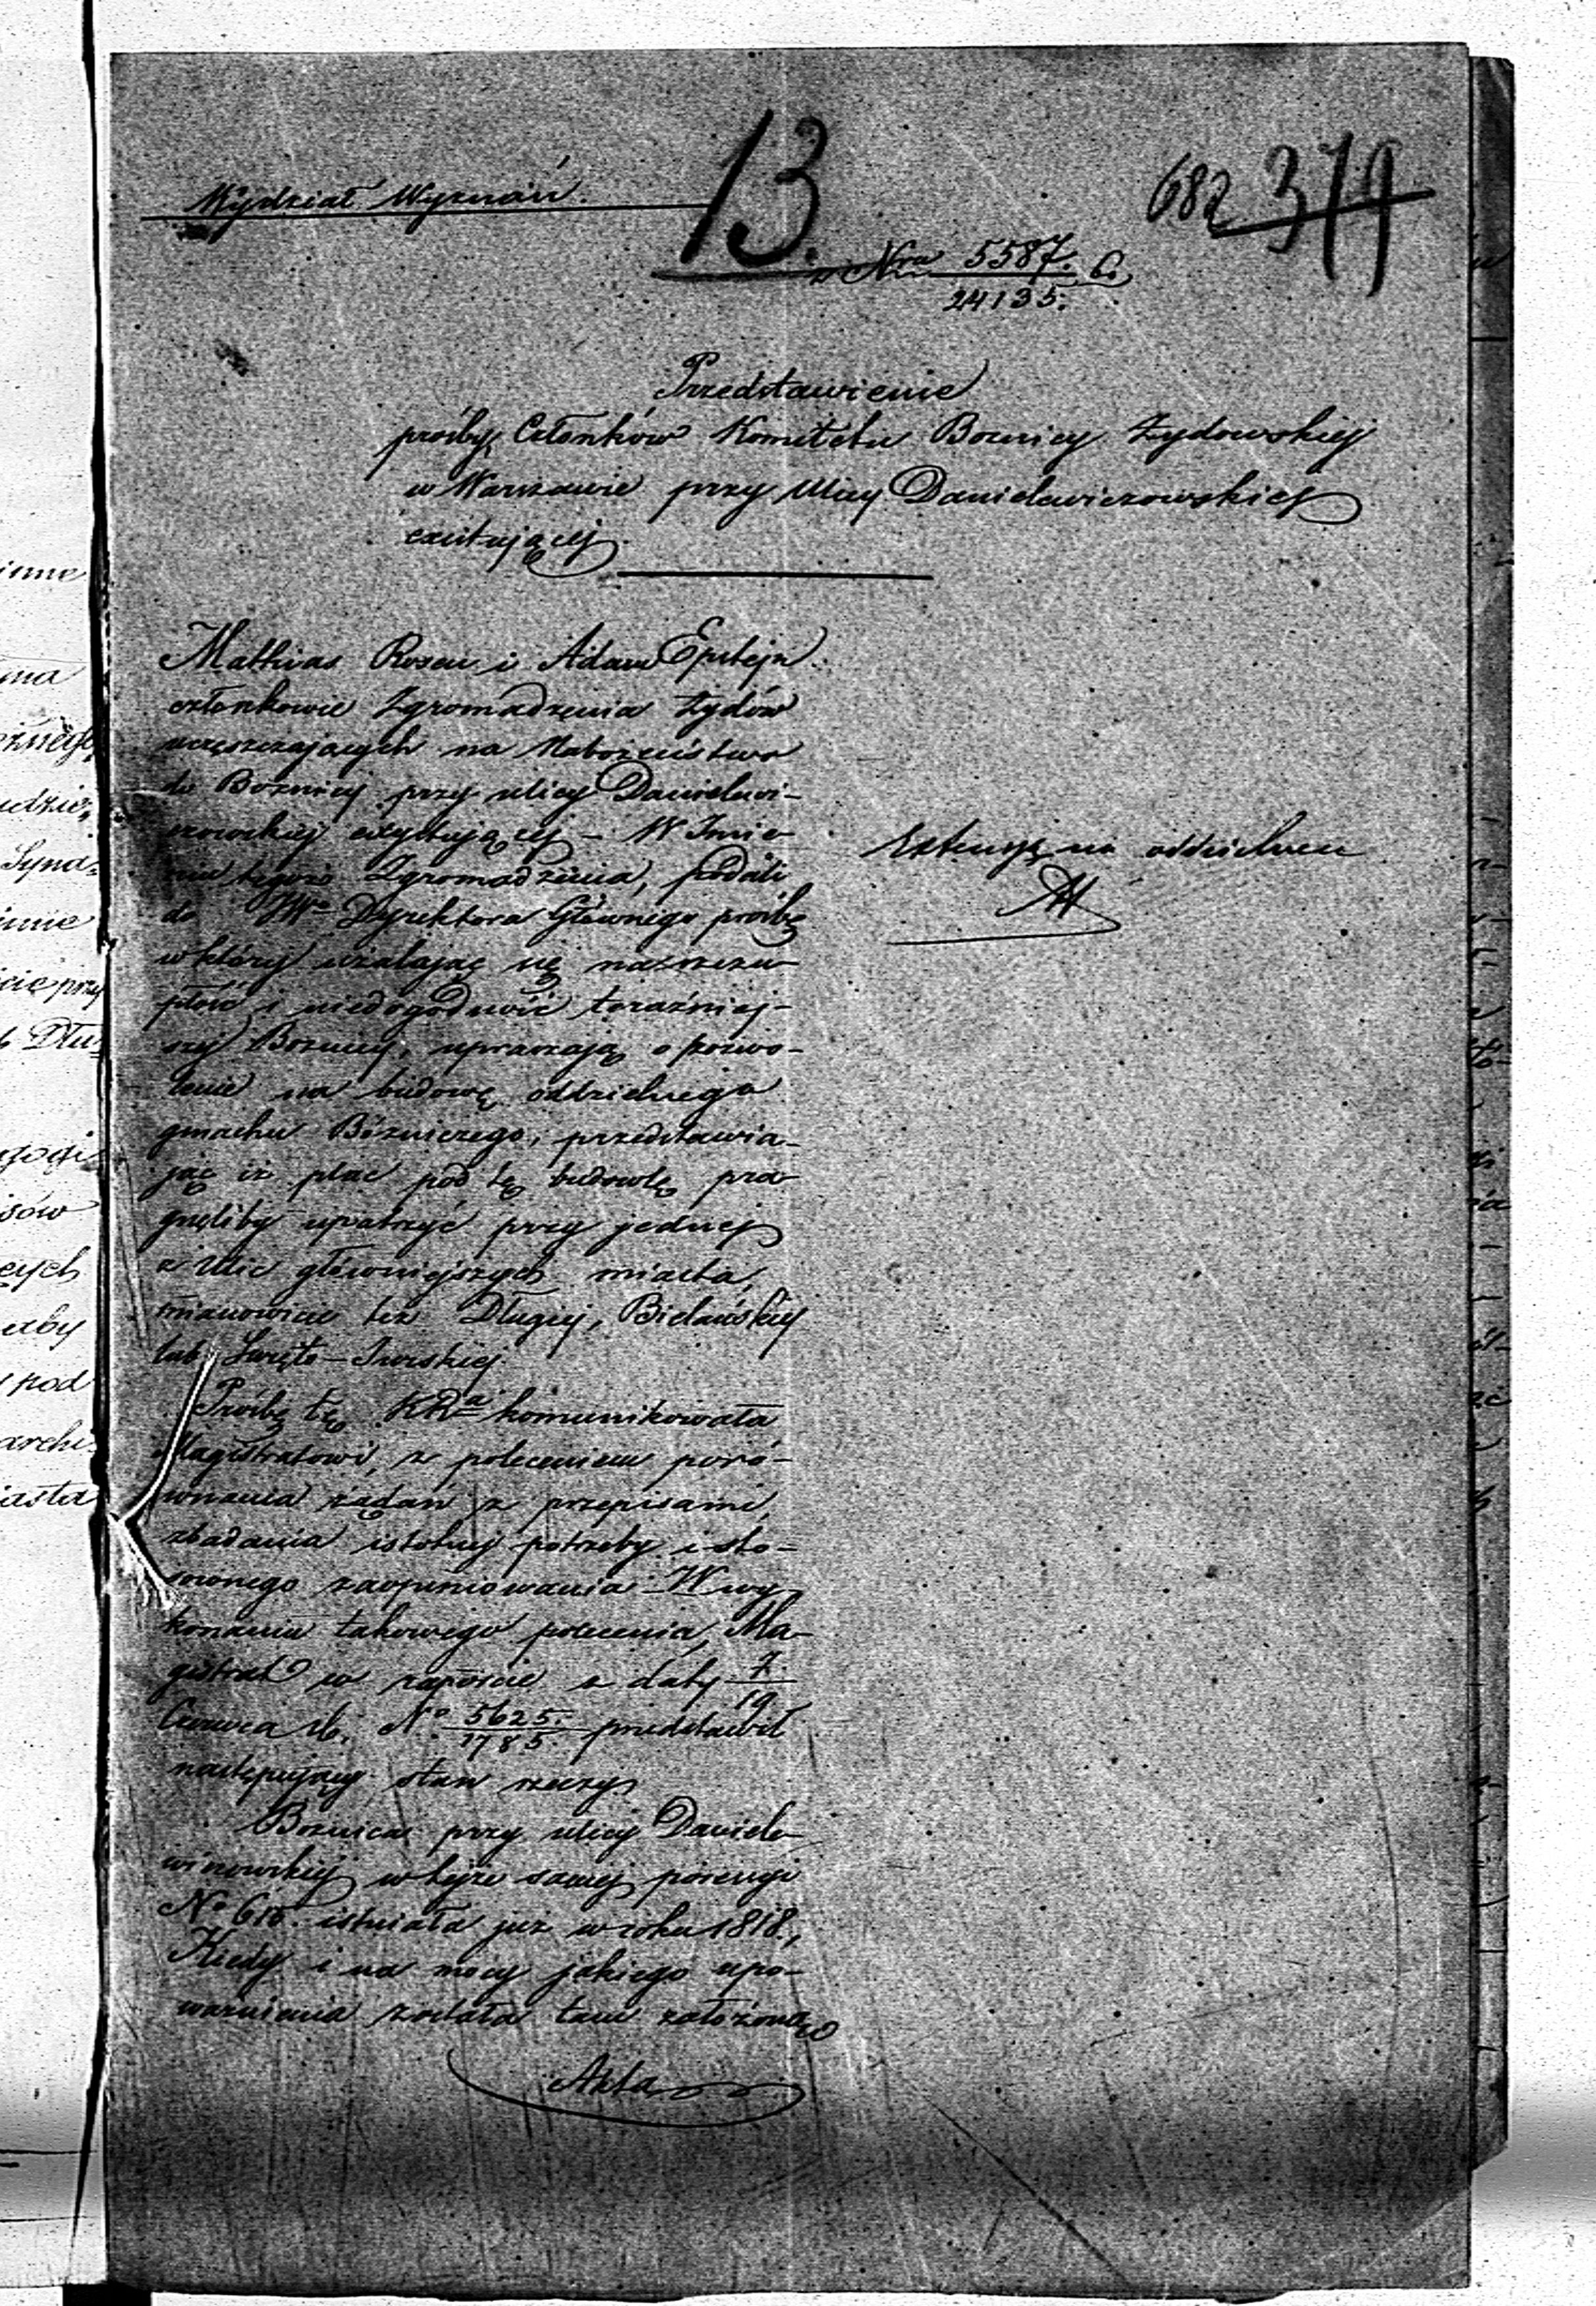 Wydział Wyznań.
13.
682 379
z Nra 5587. / 24135.
Przedstawienie
prośby Członków Komitetu Boznicy Żydowskiej
w Warszawie przy Ulicy Danielewiczowskiej
exystującej.
Mathias Rosen i Adam Epstejn
członkowie Zgromadzenia Żydów
uczęszczających na Nabożeństwo
do Boznicy przy ulicy Danielewi-
czowskiej exystującej – W Imie-
niu tegoż Zgromadzenia, podali
do JWo Dyrektora Głównego prośbę
w której użalając się na szczu-
płość i niedogodność teraźniej-
szej Boznicy, upraszają o pozwo-
lenie na budowę oddzielnego
gmachu Bóżniczego, przedstawia-
jąc iż plac pod tę budowlę pra-
gnęliby upatrzyć przy jednej
z Ulic główniejszych miasta,
mianowicie też Długiej, Bielańskiej
lub Święto-Jurskiej.
Prośbę tę KRa komunikowała
Magistratowi, z poleceniem poró-
wnania żądań z przepisami,
zbadania istotnej potrzeby i sto-
sownego zaopiniowania – W wy-
konaniu takowego polecenia, Ma-
gistrat w raporcie z daty 7/19
Czerwca rb. No 5625/1785 przedstawił
następujący stan rzeczy
Boznica przy ulicy Danielo-
wiczowskiej w tejże samej posesyi
No 615. istniała już w roku 1818.,
Kiedy i na mocy jakiego upo-
ważnienia została tam założoną
Akta
Extensya na oddzielnem
inne
ma
Syna-
innie
cie przy
b Dłu-
gogi
sów
cych
aby
pod
archi-
iasta